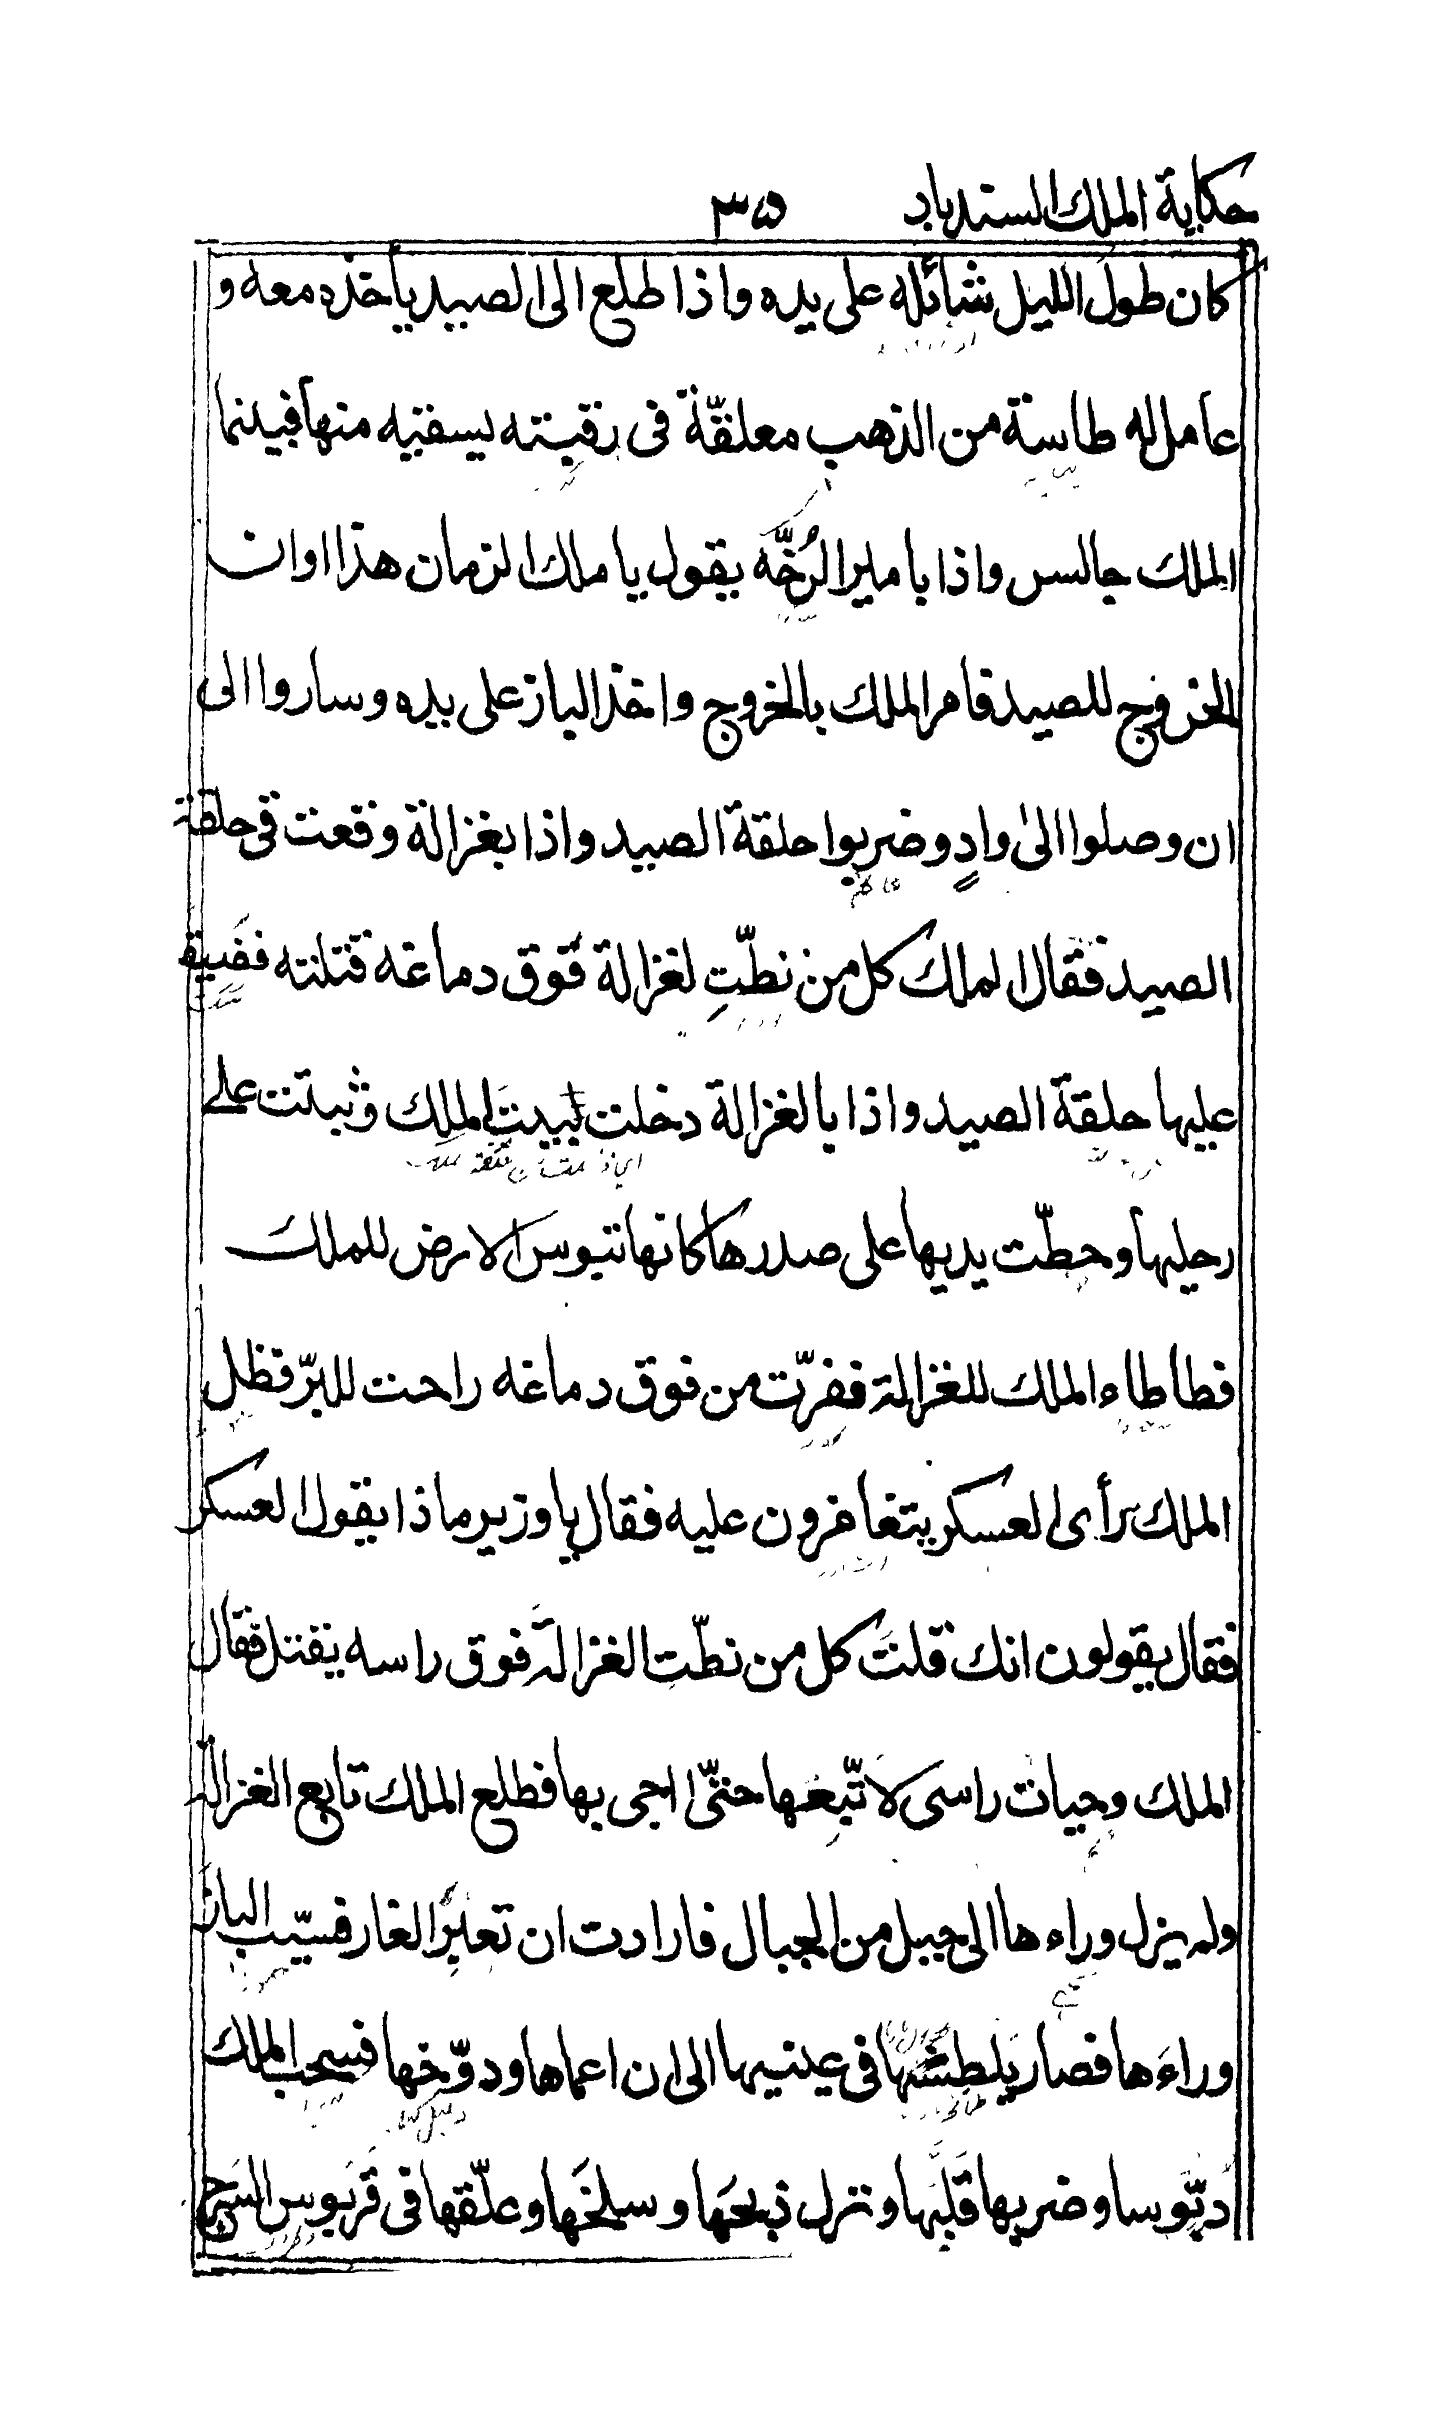 حكاية الملك السندباد ٣٥
كان طول الليل شائله على يده واذا طلع الى الصيد ياخذه معه و
عامل له طاسة من الذهب معلقّة فى رقبته يسقيه منها فبينما
الملك جالس واذا بامير الرُخّة يقول يا ملك الزمان هذا اوان
الخروج للصيد فامر الملك بالخروج واخذ الباز على يده وساروا الى
ان وصلوا الىٰ وادٍ وضربوا حلقة الصيد واذا بغزالة وقعت فى حلقة
الصيد فقال الملك كل من نطّتِ لغزالة فوق دماغه قتلته فضيق
عليها حلقة الصيد واذا بالغزالة دخلت لبيت الملك وثبتت على
رجليها وحطّت يديها على صدرها كانها تبوس الارض للملك
فطاطاء الملك للغزالة ففرّت من فوق دماغه راحت للبرّ فظل
الملك يرأى العسكر يتغامزون عليه فقال يا وزير ماذا يقول العسكر
فقال يقولون انك قلتَ كل من نطّت الغزالة فوق راسه يقتل فقال
الملك وحيات راسى لا تّبعها حتّى اجى بها فطلع الملك تابع الغزالة
ولم يزل وراءها الى جبل من الجبال فارادت ان تعبر الغار فسيّب الباز
وراءها فصار يلطشها فى عينيها الى ان اعماها ودوّخها فسحب الملك
دبّوسا وضربها قلبها ونزل ذبحها وسلخها وعلّقها فى قربوس السرج